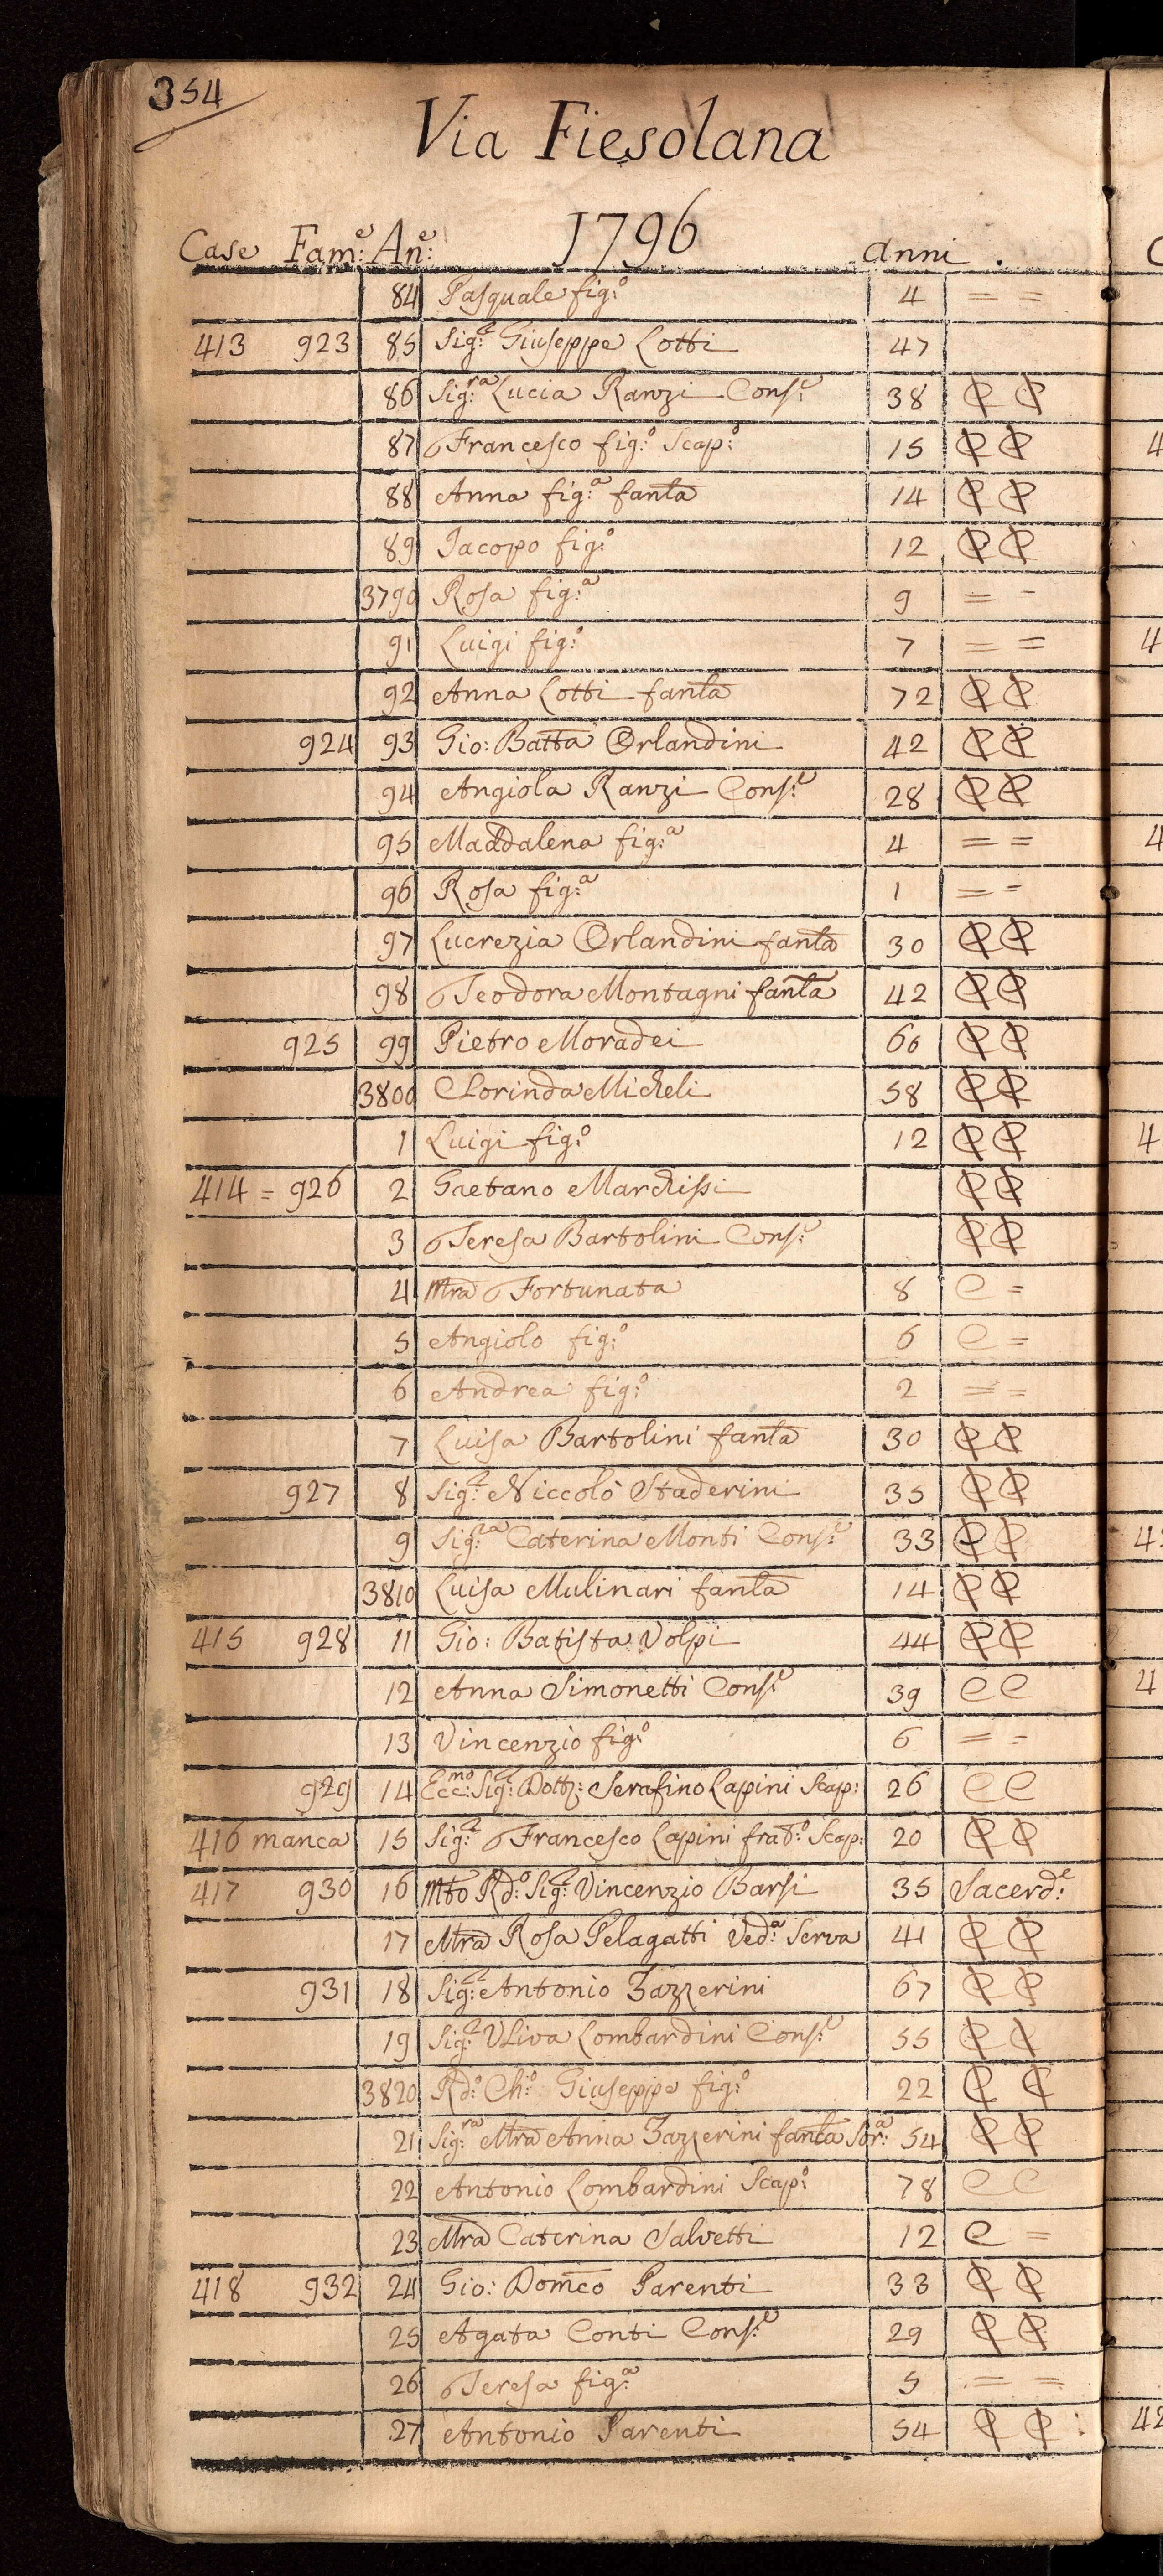 354
Via Fiesolana
1796
Case Fam:e An:e anni
84 Pasquale fig:o 4 = =
413 923 85 Sig:r Giuseppe Lotti 47
86 Sig:ra Lucia Ranzi Cons:e 38 C C
87 Francesco fig:o Scap:o 15 C C
88 Anna fig:a fanla 14 C C
89 Jacopo fig:o 12 C C
3790 Rosa fig:a 9 = =
91 Luigi fig:o 7 = =
92 Anna Lotti fanla 72 C C
924 93 Gio: Batta Orlandini 42 C C
94 Angiola Ranzi Cons:e 28 C C
95 Maddalena fig:a 4 = =
96 Rosa fig:a 1 = =
97 Lucrezia Orlandini fanla 30 C C
98 Teodora Montagni fanla 42 C C
925 99 Pietro Moradei 60 C C
3800 Clorinda Micheli 58 C C
1 Luigi fig:o 12 C C
414 = 926 2 Gaetano Marchissi C C
3 Teresa Bartolini Cons:e C C
4 Mra Fortunata 8 C =
5 Angiolo fig:o 6 C =
6 Andrea fig:o 2 = =
7 Luisa Bartolini fanla 30 C C
927 8 Sig:r Niccolò Staderini 35 C C
9 Sig:ra Caterina Monti Cons:e 33 C C
3810 Luisa Mulinari fanla 14 C C
415 928 11 Gio: Batista Volpi 44 C C
12 Anna Simonetti Cons:e 39 C C
13 Vincenzio fig:o 6 = =
929 14 Ecc:mo Sig:r Dott: Serafino Lapini Scap: 26 C C
416 manca 15 Sig:r Francesco Lapini frat:o Scap: 20 C C
417 930 16 Mto Rd:o Sig:r Vincenzio Barsi 35 Sacerd:e
17 Mra Rosa Pelagatti Ved:a Serva 41 C C
931 18 Sig:r Antonio Zazzerini 67 C C
19 Sig:ra Uliva Lombardini Cons:e 55 C C
3820 Rd:o Ch:o Giuseppe fig:o 22 C C
21 Sig:ra Mra Anna Zazzerini fanla Sor:a 54 C C
22 Antonio Lombardini Scap:o 78 C C
23 Mra Caterina Salvetti 12 C =
418 932 24 Gio: Domco Parenti 33 C C
25 Agata Conti Cons:e 29 C C
26 Teresa fig:a 5 = =
27 Antonio Parenti 54 C C :